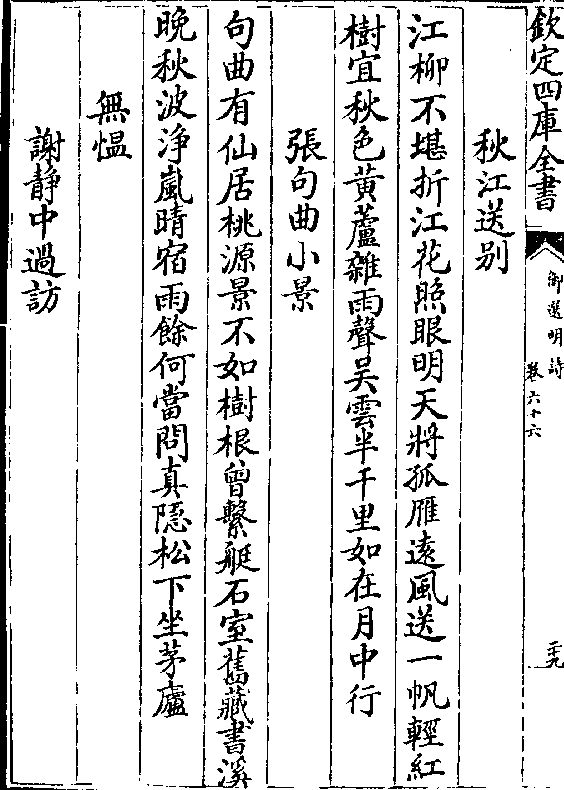 欽定四庫全書
御選明詩
卷六十六
二十九
秋江送别
江柳不堪折江花照眼明天將孤雁遠風送一帆輕紅
樹宜秋色黄蘆雜雨聲吳雲半千里如在月中行
張句曲小景
句曲有仙居桃源景不如樹根曾繫艇石室舊藏書溪
晚秋波浄嵐晴宿雨餘何當問真隠松下坐茅廬
無愠
謝静中過訪